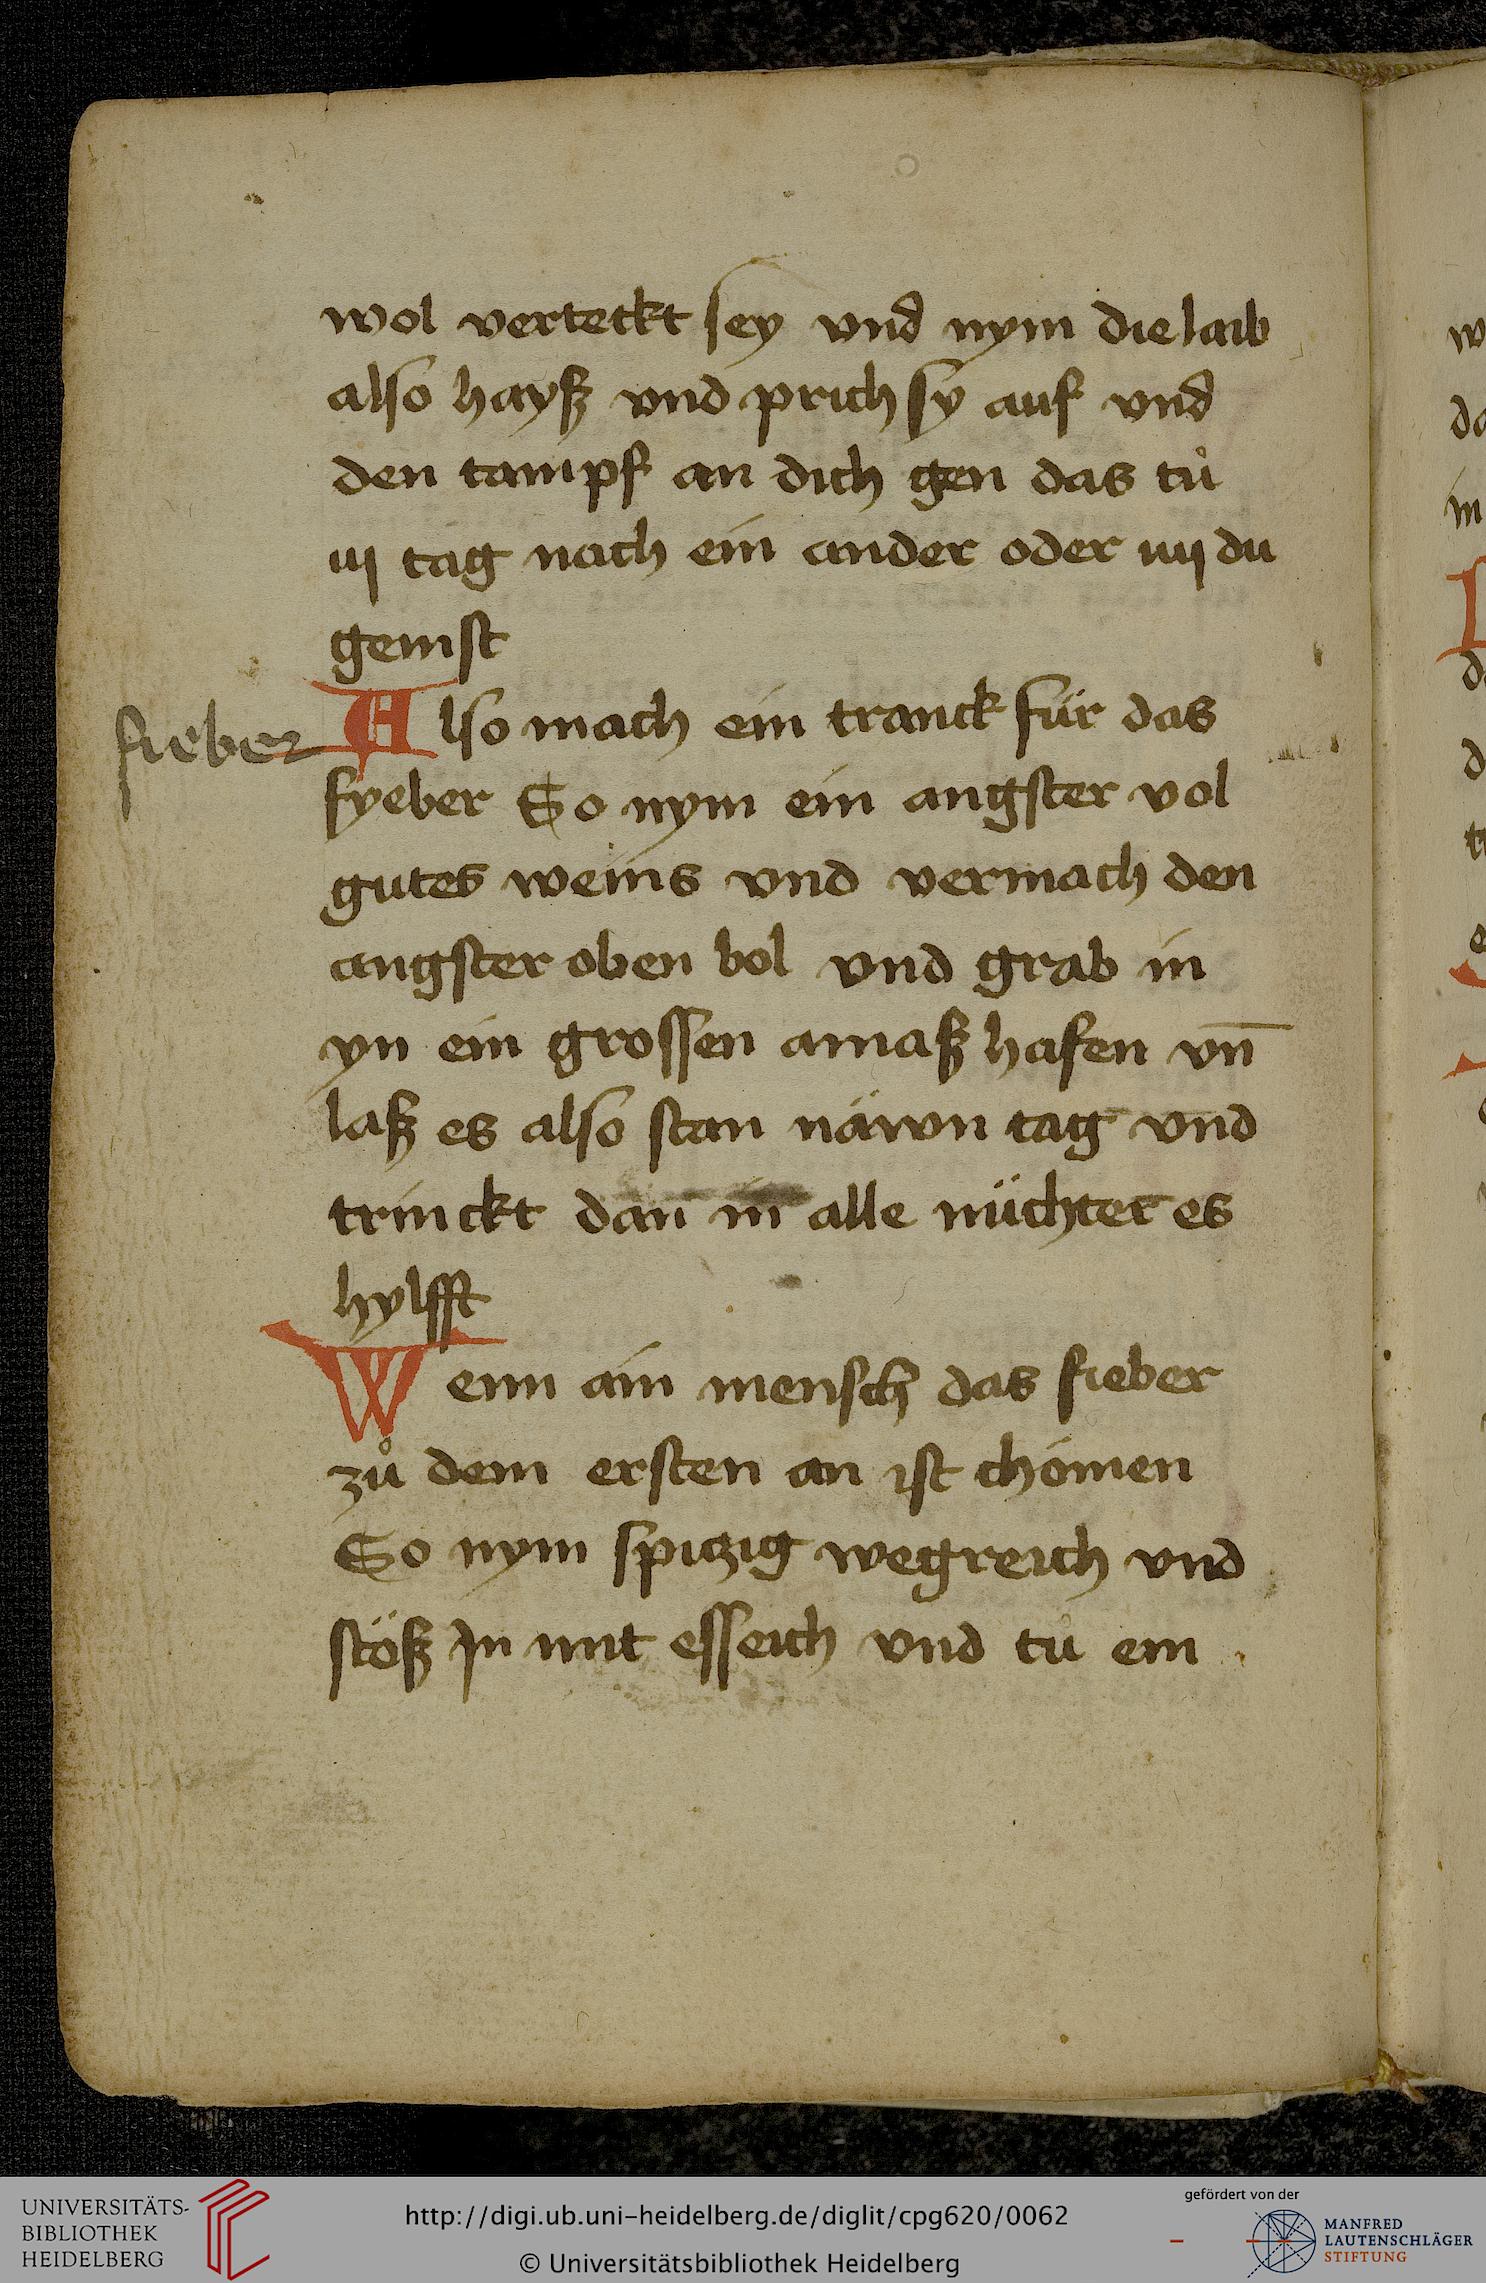 wol verteckt sey vnd nym die laib
also hayß vnd prich sy auf vnd
den tampf an dich gen das tuͦ
iij tag nach ein ander oder iiij du
genist
fieber
Also mach ein tranck für das
fyeber So nym ein angster vol
gutes weins vnd vermach den
angster oben bol vnd grab in
yn ein grossen amaß hafen vn̄
laß es also stan näwn tag vnd
trinckt dan in alle nüchter es
hylfft
Wenn ain mensch das fieber
zuͦ dem ersten an ist chömen
So nym spiczig wegreich vnd
stöß Jn mit esseich vnd tuͦ ein
UNIVERSITÄTS-
BIBLIOTHEK
HEIDELBERG
http://digi.ub.uni-heidelberg.de/diglit/cpg620/0062
© Universitätsbibliothek Heidelberg
gefördert von der
MANFRED
LAUTENSCHLÄGER
STIFTUNG